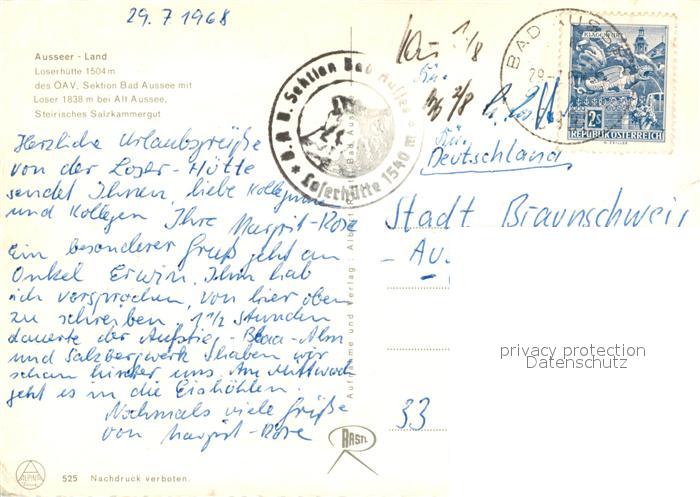 29.7.1968
Ausseer - Land
Loserhütte 1504 m
des OAV, Sektion Bad Aussee mit
Loser 1838 m bei Alt Aussee,
Steirisches Salzkammergut
Herzliche Urlaubsgrüße
von der Loser-Hütte
sendet Ihnen, liebe Kolleginnen
und Kollegen Ihre Margrit-Rose
Ein besonderer Gruß geht an
Onkel Erwin. Ihm hab
ich versprochen, von hier oben
zu schreiben. 1 1/2 Stunden
dauerte der Aufstieg. Blaa-Alm
und Salzbergwerk haben wir
schon hinter uns. Am Mittwoch
geht es in die Eishöhlen.
Nochmals viele Grüße
von Margrit-Rose
ALPINA
525 Nachdruck verboten.
Sektion Bad Aussee
Loserhütte 1540 m
Aufnahme und Verlag:
BAD AUSSEE
KLAGENFURT
2S
REPUBLIK ÖSTERREICH
1/8
2/8
Deutschland
Stadt Braunschweig
- Au.
33
RASTL
privacy protection
Datenschutz